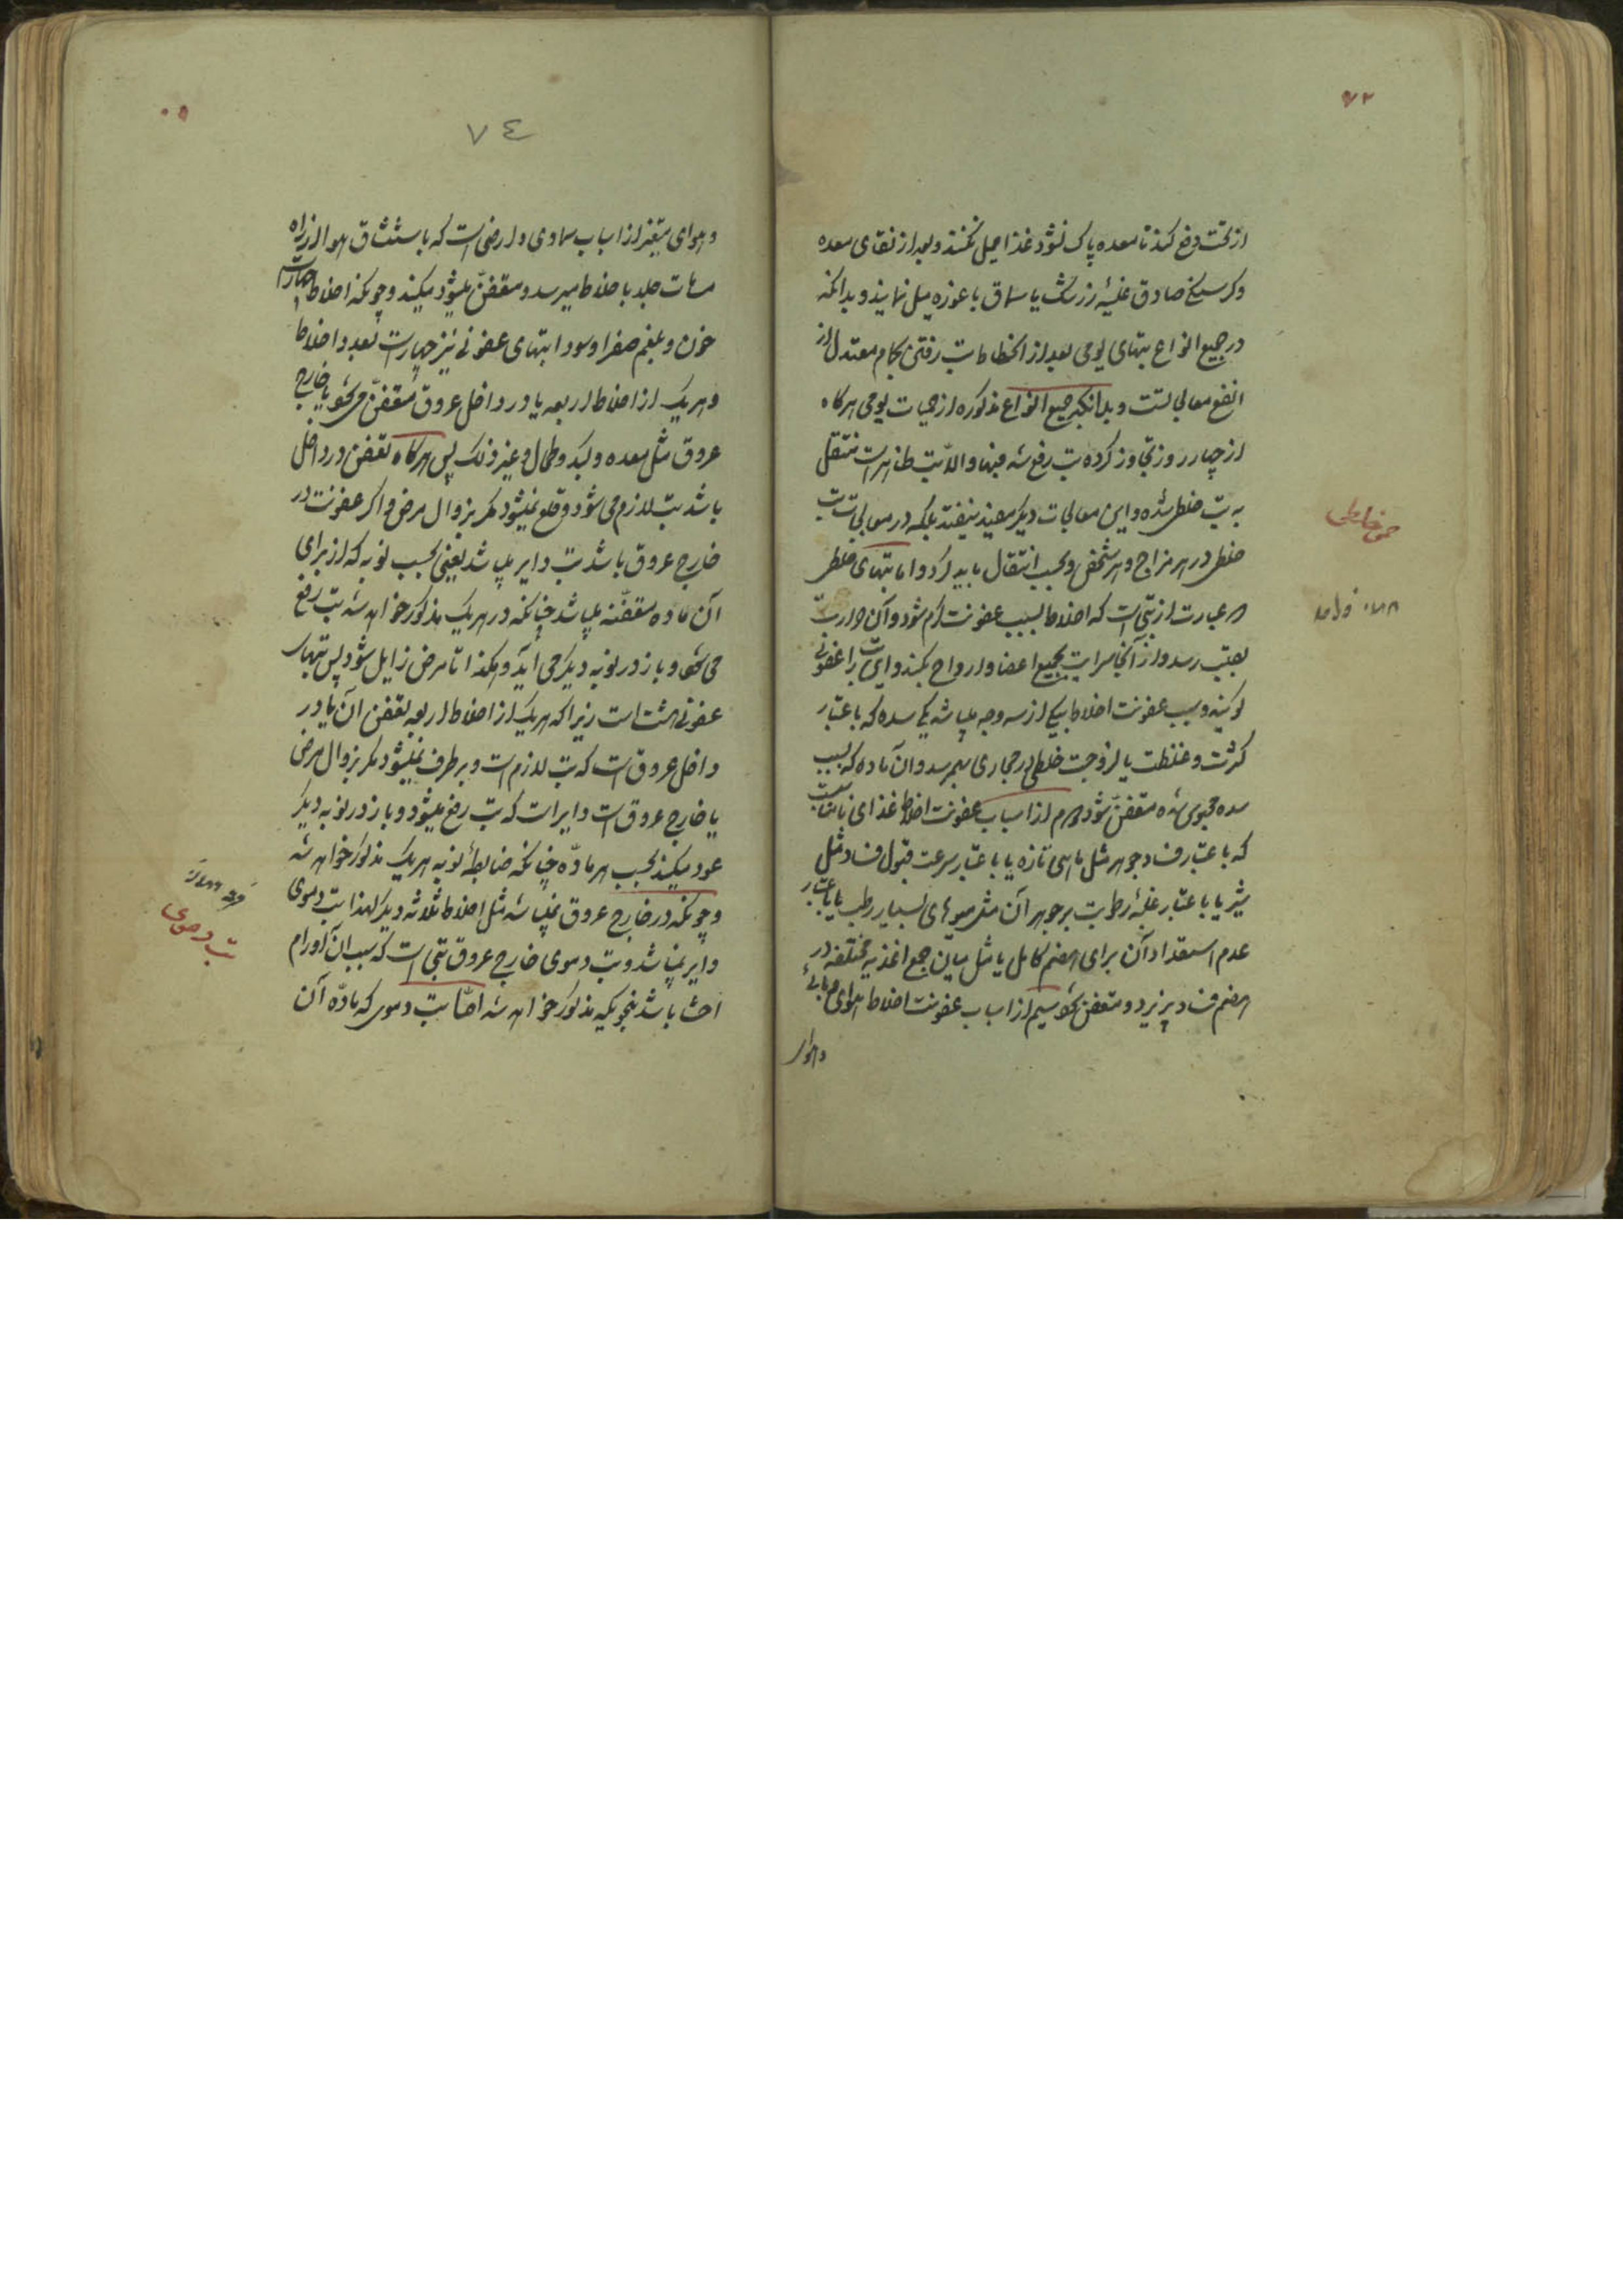 ۷۳
از تحت دفع کند تا معده پاک نشود غذا میل نکنند و بعد از نقای معده
و کرسنکی صادق غلیهٔ زرشک یا سماق یا غوره میل نمایند و بدانکه
در جمیع انواع تبهای یومی بعد از انحطاط تب رفتن بحمام معتدل از
انفع معالجاتست و بدانکه جمیع انواع مذکوره از حمیات یومی هرکاه
از چهار روز تجاوز کرده تب رفع شد فبها و الا تب ظاهر است منتقل
به تب خلطی شده و این معالجات دیکر مفید نیفتد بلکه در معالجات تب
خلطی در هر مزاج و هر شخص و بحسب انتقال باید کرد و اما تبهای خلطی
حمی خلطی
عبارت از تبی است که اخلاط بسبب عفونت کرم شود و آن حرارت
بقلب رسد و از آنجا سرایت بجمیع اعضا و ارواح بکند و این تب را عفونی
کویند و سبب عفونت اخلاط یکی از سه وجه میباشد یکی سده که باعتبار
کثرت و غلظت یا لزوجت خلطی در مجاری بهم رسد و آن ماده که بسبب
سده محبوس شده متعفن شود دوم از اسباب عفونت اخلاط غذای نامناسبت
که باعتبار فساد جوهر مثل ماهی تازه یا باعتبار سرعت قبول فساد مثل
شیر یا باعتبار غلبهٔ رطوبت بر جوهر آن مثل میوهای بسیار رطب یا باعتبار
عدم استعداد آن برای هضم کامل یا مثل میان جمع اغذیه مختلفه در
هضم فساد پزیرد و متعفن شود سیم از اسباب عفونت اخلاط هوای وبائی
و هوای
۷٤
و هوای متغیر از اسباب سماوی و ارضی است که باستنشاق هوا از راه
مسامات جلد باخلاط میرسد و متعفن میشود میکند و چونکه اخلاط چهار است
خون و بلغم صفرا و سودا تبهای عفونی نیز چهار است بعدد اخلاط
و هریک از اخلاط اربعه یا در داخل عروق متعفن می شود یا خارج
عروق مثل معده و کبد و طحال و غیر ذلک پس هرکاه تعفن در داخل
باشد تب لازم می شود و قلع نمیشود مکر بزوال مرض و اکر عفونت در
خارج عروق باشد تب دایر میباشد یعنی بحسب نوبه که از برای
آن ماده متعفنه میباشد چنانکه در هریک مذکور خواهد شد تب رفع
می شود و باز در نوبه دیکر می آید و هکذا تا مرض زایل شود پس تبهای
عفونی هشت است زیرا که هریک از اخلاط اربعه تعفن آن یا در
داخل عروق است که تب لازم است و برطرف نمیشود مکر بزوال مرض
یا خارج عروق است و دایر است که تب رفع میشود و باز در نوبه دیکر
عود میکند بحسب هر ماده چنانکه ضابطهٔ نوبه هریک مذکور خواهد شد
و چونکه در خارج عروق نمیباشد مثل اخلاط ثلاثه دیکر لهذا تب دموی
تب دموی
دایر نمیباشد و تب دموی خارج عروق تبی است که سبب آن اورام
احشا باشد بنحویکه مذکور خواهد شد اما تب دموی که ماده آن